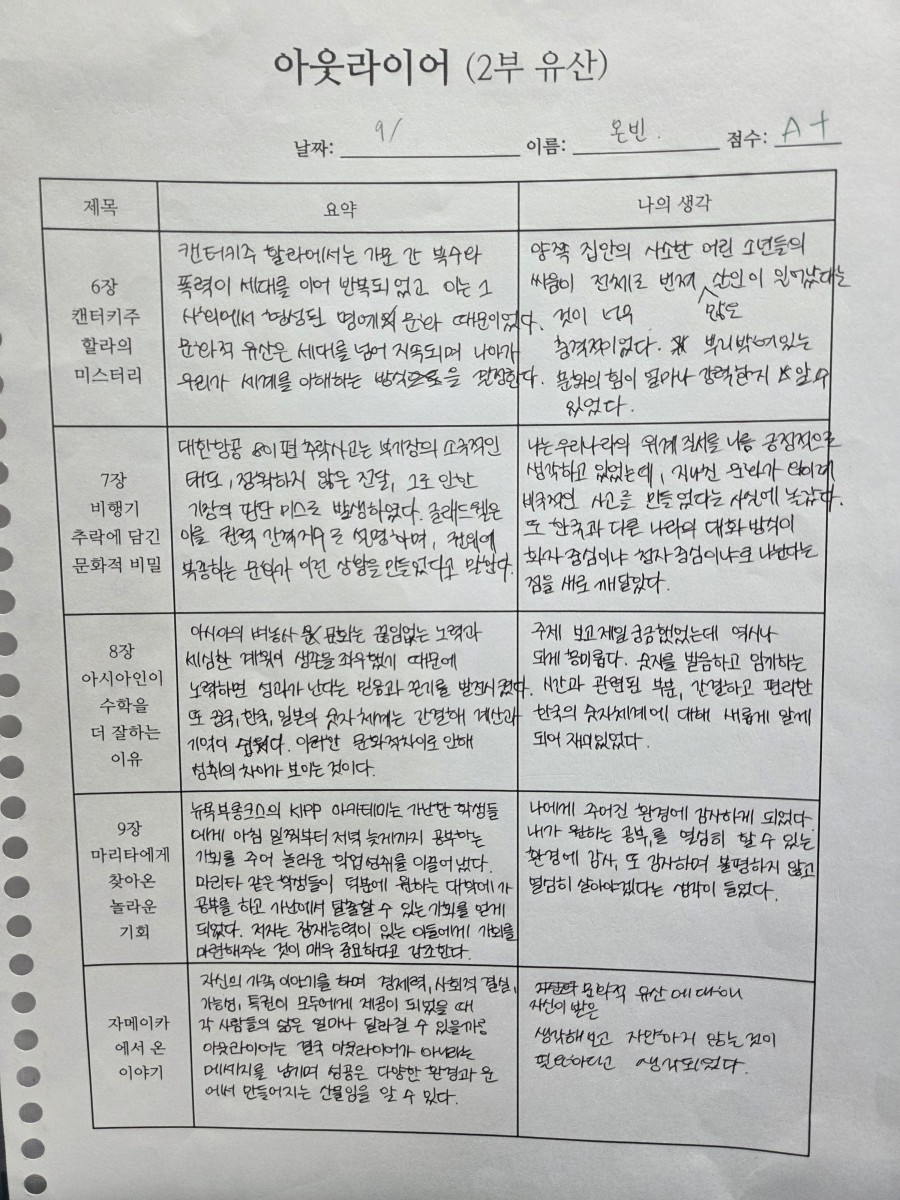 아웃라이어 (2부 유산)
날짜: 9/ 이름: 온빈. 점수: A+
제목 요약 나의 생각
6장
캔터키주
할라의
미스터리
캔터키주 할라에서는 가문 간 복수와
폭력이 세대를 이어 반복되었고 이는 그
사회에서 형성된 명예의 문화 때문이었다.
문화적 유산은 세대를 넘어 지속되며 나아가
우리가 세계를 이해하는 방식을 결정한다.
양쪽 집안의 사소한 어린 소년들의
싸움이 전체로 번져 살인이 일어났다는
많은
것이 너무
충격적이었다. 뿌리박혀있는
문화의 힘이 얼마나 강력한지 알 수
있었다.
7장
비행기
추락에 담긴
문화적 비밀
대한항공 801편 추락사고는 부기장의 소극적인
태도, 정확하지 않은 전달, 그로 인한
기장의 판단 미스로 발생하였다. 글래드웰은
이를 권력 간격지수로 설명하며, 권위에
복종하는 문화가 이런 상황을 만들었다고 말한다.
나는 우리나라의 위계 질서를 나름 긍정적으로
생각하고 있었는데, 지나친 문화가 이렇게
비극적인 사고를 만들었다는 사실에 놀랐다.
또 한국과 다른 나라의 대화 방식이
화자 중심이냐 청자 중심이냐로 나뉜다는
점을 새로 깨달았다.
8장
아시아인이
수학을
더 잘하는
이유
아시아의 벼농사 문화는 끊임없는 노력과
세심한 계획이 생존을 좌우했기 때문에
노력하면 성과가 난다는 믿음과 끈기를 발전시켰다.
또 중국, 한국, 일본의 숫자 체계는 간결해 계산과
기억이 쉬웠다. 이러한 문화적차이로 인해
성취의 차이가 보이는 것이다.
주제 보고 제일 궁금했었는데 역시나
되게 흥미롭다. 숫자를 발음하고 암기하는
시간과 관련된 부분, 간결하고 편리한
한국의 숫자체계에 대해 새롭게 알게
되어 재미있었다.
9장
마리타에게
찾아온
놀라운
기회
뉴욕 브롱크스의 KIPP 아카데미는 가난한 학생들
에게 아침 일찍부터 저녁 늦게까지 공부하는
기회를 주어 놀라운 학업성취를 이끌어냈다.
마리타 같은 학생들이 덕분에 원하는 대학에 가
공부를 하고 가난에서 탈출할 수 있는 기회를 얻게
되었다. 저자는 잠재능력이 있는 아들에게 기회를
마련해주는 것이 매우 중요하다고 강조한다.
나에게 주어진 환경에 감사하게 되었다.
내가 원하는 공부를 열심히 할 수 있는
환경에 감사, 또 감사하며 불평하지 않고
열심히 살아야겠다는 생각이 들었다.
자메이카
에서 온
이야기
자신의 가족 이야기를 하며 경제력, 사회적 결실,
가능성, 특권이 모두에게 제공이 되었을 때
각 사람들의 삶은 얼마나 달라질 수 있을까?
아웃라이어는 결국 아웃라이어가 아니라는
메세지를 남기며 성공은 다양한 환경과 운
에서 만들어지는 산물임을 알 수 있다.
문화적 유산에 대해
자신이 받은
생각해보고 자만하지 않는 것이
필요하다고 생각되었다.